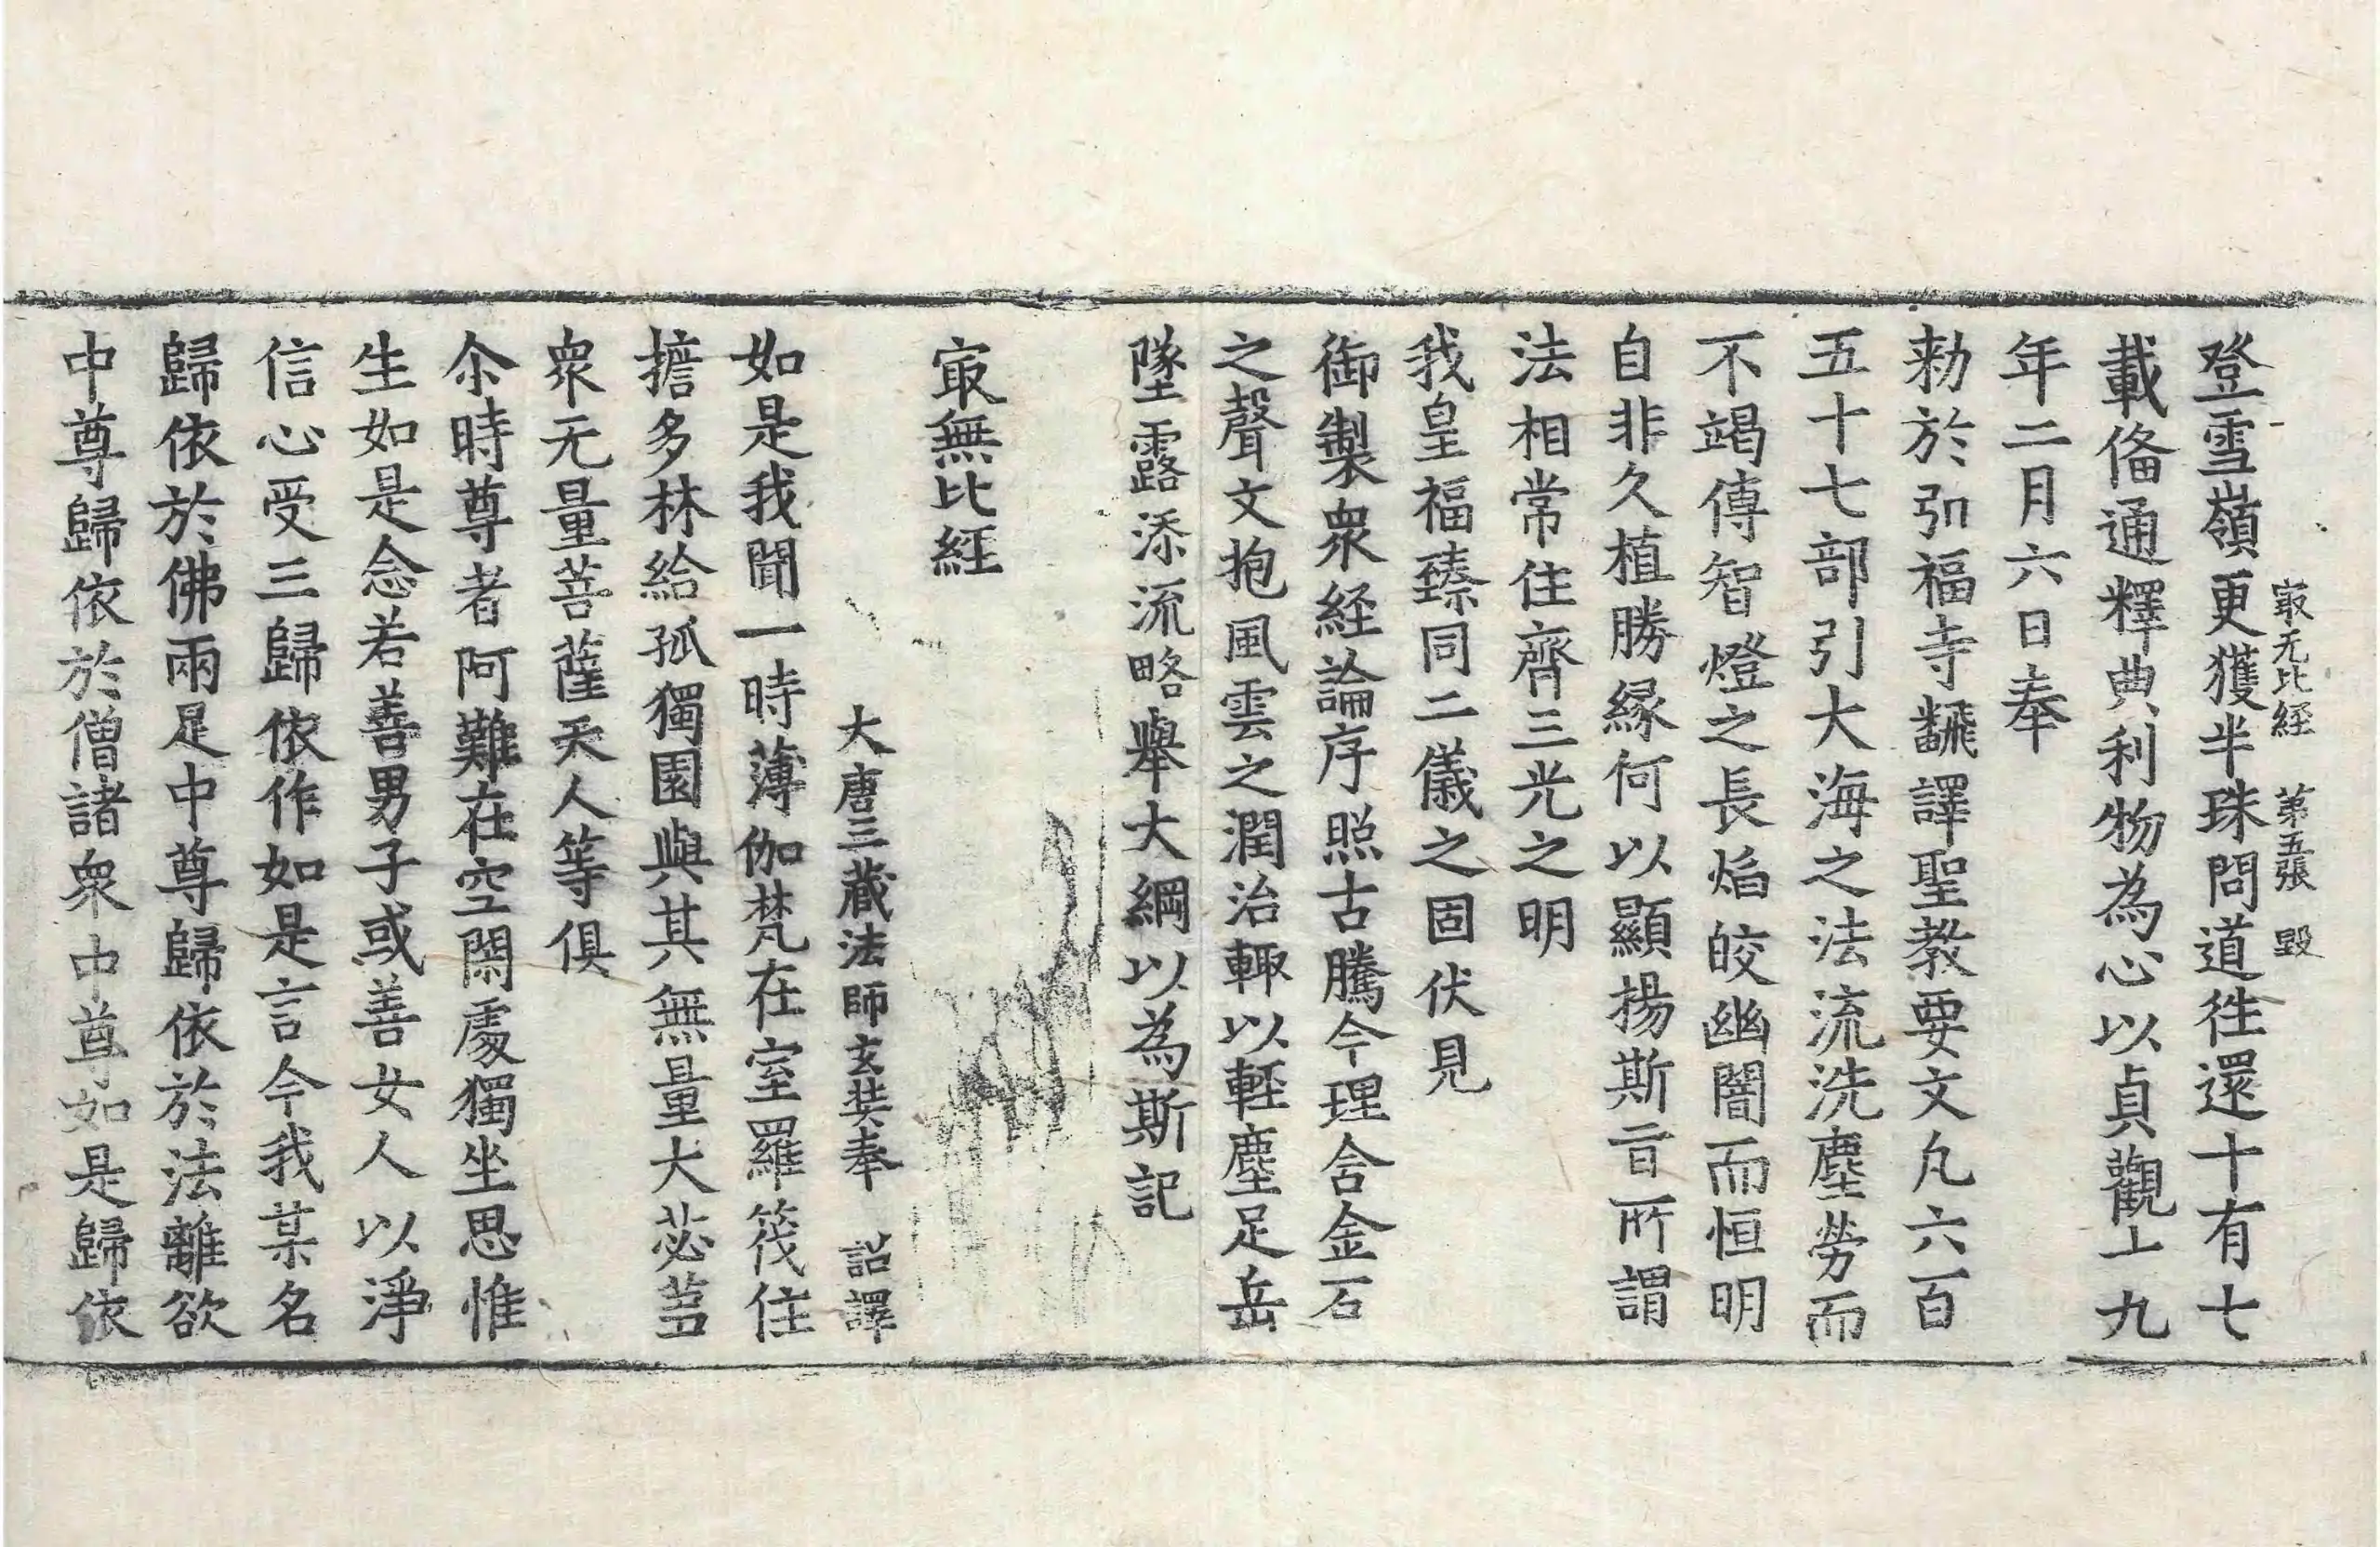 㝡无比経　第五張　毀
登雪嶺更獲半珠問道徃還十有七
載俻通釋典利物為心以貞觀十九
年二月六日奉
勑於弘福寺飜譯聖教要文凡六百
五十七部引大海之法流洗塵勞而
不竭傳智燈之長焔皎幽闇而恒明
自非久植勝縁何以顯揚斯旨所謂
法相常住齊三光之明
我皇福臻同二儀之固伏見
御製衆経論序照古騰今理含金石
之聲文抱風雲之潤治輙以輕塵足岳
墜露添流略舉大綱以為斯記
㝡無比経
大唐三藏法師玄奘奉　詔譯
如是我聞一時薄伽梵在室羅筏住
擔多林給孤獨園與其無量大苾芻
衆无量菩薩天人等俱
尒時尊者阿難在空閑處獨坐思惟
生如是念若善男子或善女人以淨
信心受三歸依作如是言今我某名
歸依於佛兩足中尊歸依於法離欲
中尊歸依於僧諸衆中尊如是歸依